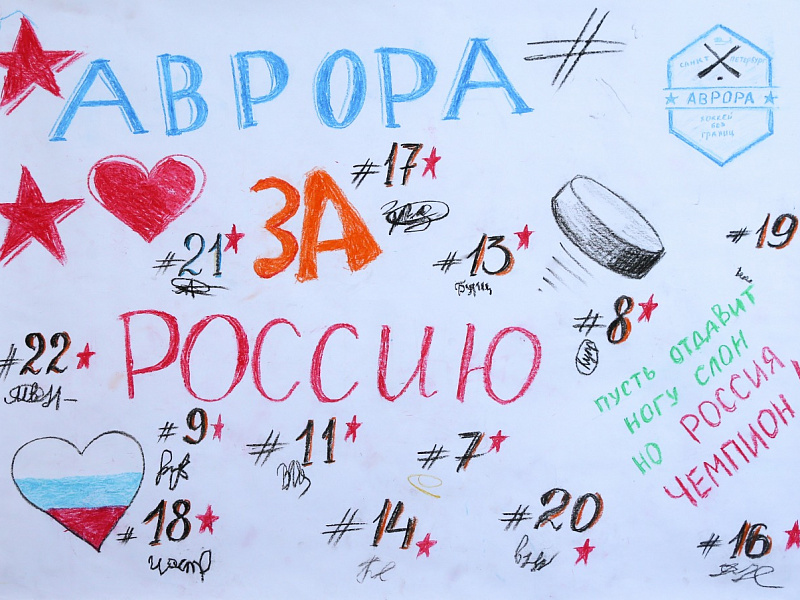 АВРОРА #
САНКТ ПЕТЕРБУРГ
АВРОРА
ХОККЕЙ
БЕЗ
ГРАНИЦ
ЗА
#17
#21
#13
#19
РОССИЮ
#8
#22
ПУСТЬ ОТДАВИТ
НОГУ СЛОН
НО РОССИЯ
ЧЕМПИОН
#9
#11
#7
#18
#14
#20
#16